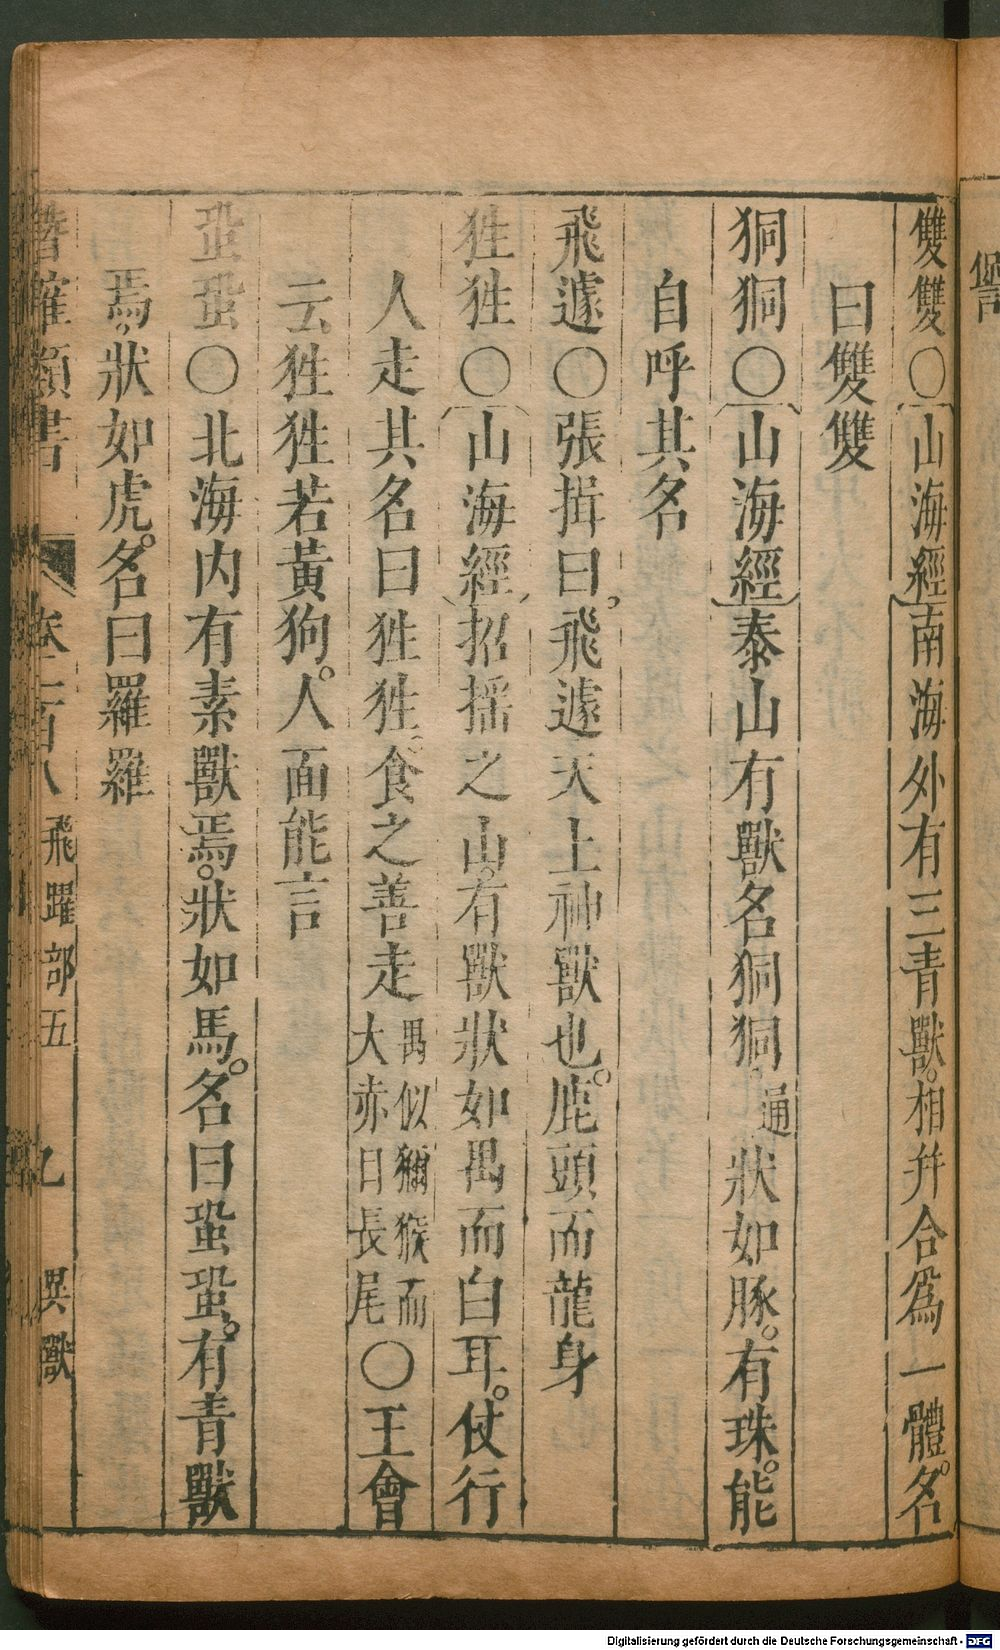 雙雙〇山海經南海外有三青獸。相幷合爲一體。名
曰雙雙
狪狪〇山海經泰山有獸名狪狪通狀如豚。有珠。能
自呼其名
飛遽〇張揖曰。飛遽天上神獸也。鹿頭而龍身
狌狌〇山海經招揺之山。有獸狀如禺而白耳。伏行
人走其名曰狌狌。食之善走禺似獼猴而大赤目長尾〇王會
云狌狌若黃狗。人面能言
蛩蛩〇北海内有素獸焉。狀如馬。名曰蛩蛩。有青獸
焉。狀如虎。名曰羅羅
潛確類書 卷一百八 飛躍部五 九 異獸
Digitalisierung gefördert durch die Deutsche Forschungsgemeinschaft - DFG